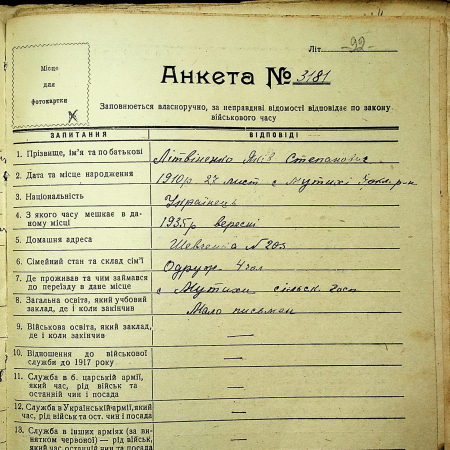 Літ. 92
Місце
для
фотокартки
Анкета № 3181
Заповнюється власноручно, за неправдиві відомості відповідає по закону
військового часу
ЗАПИТАННЯ
ВІДПОВІДІ
1. Прізвище, ім'я та по батькові
Літвіненко Яків Степанович
2. Дата та місце народження
1910р 27 лист с Мутихі
3. Національність
Українець
4. З якого часу мешкає в даному місці
1935р вересні
5. Домашня адреса
Шевченка N 203
6. Сімейний стан та склад сім'ї
Одруж 4 чол
7. Де проживав та чим займався
до переїзду в дане місце
с Мутихи сільск. госп
8. Загальна освіта, який учбовий
заклад, де і коли закінчив
Мало письмен
9. Військова освіта, який заклад,
де і коли закінчив
—
10. Відношення до військової
служби до 1917 року
—
11. Служба в б. царській армії,
який час, рід військ та
останній чин і посада
—
12. Служба в Українській армії, який
час, рід військ та ост. чин і посада
—
13. Служба в інших арміях (за ви-
нятком червоної) — рід військ,
який час, останній чин та посада
—